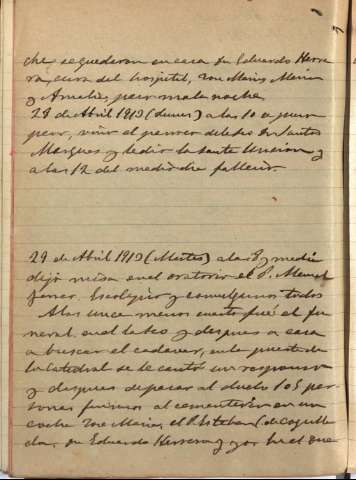 che se quedaron en casa Dn Eduardo Herre
ra, cura del hospital, José María, María
y Amalia, pero mala noche.
28 de Abril 1919 (Lunes) a las 10 a
peor, vino el parroco de la de Santos
Marques y le dió la Santa Uncion y
a las 12 del medio dia fallecio.
29 de Abril 1919 (Martes) a las 8 y media
dijo misa en el oratorio el P. Manuel
Ferrer. Escolapio y comulgamos todos
A las once menos cuarto fué el fu
neral en el Aseo y despues a casa
a buscar el cadaver, en la puerta de
la Catedral se le cantó un responso
y despues de pasar al duelo los per
sonas fuimos al cementerio en un
coche José Maria, el P. Esteban (de Cogulla
da, Dn Eduardo Herrera y yo en el que